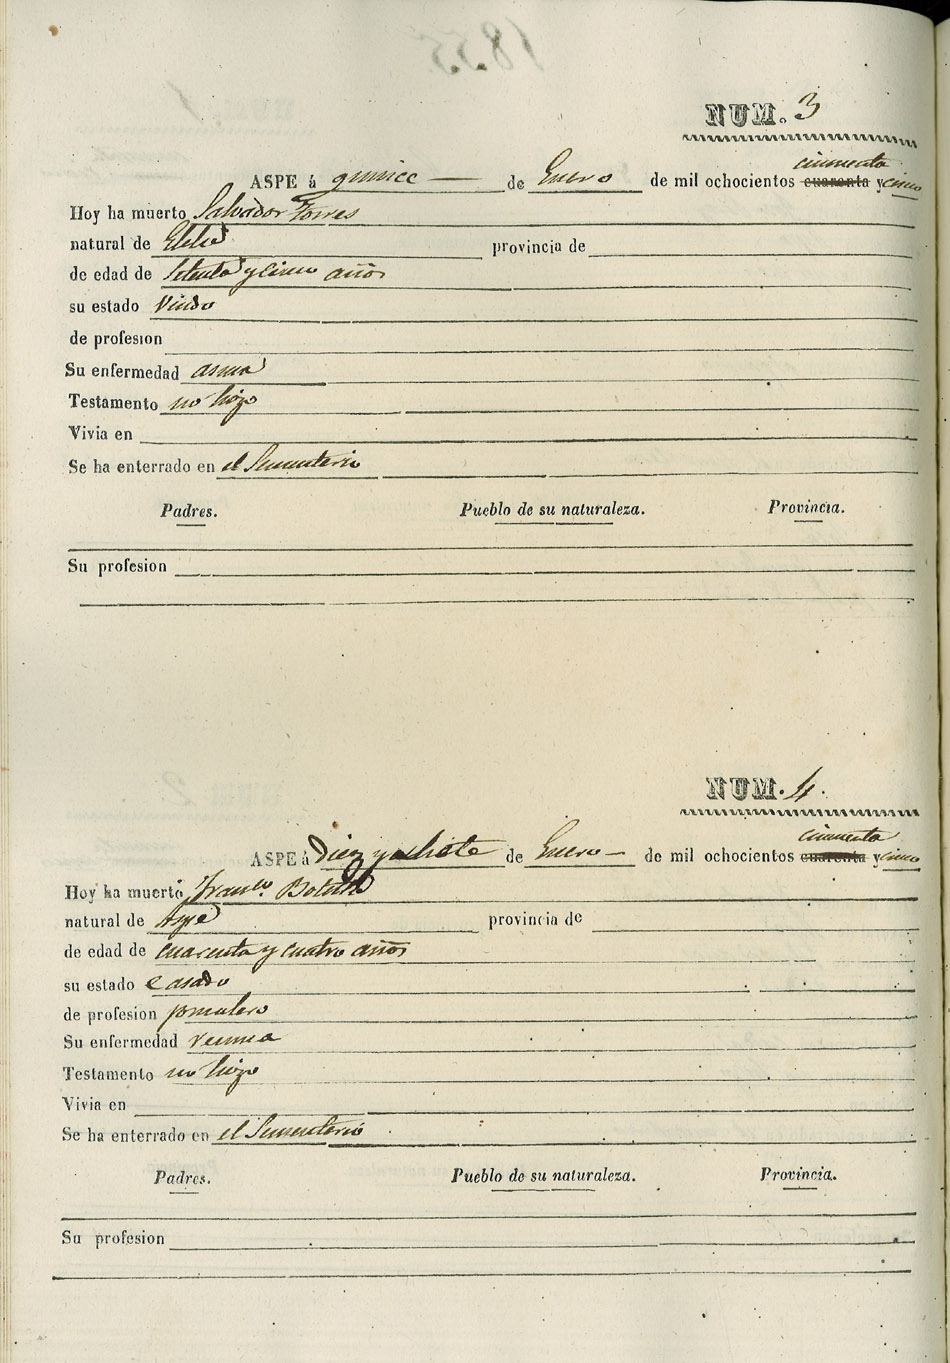 NUM. 3
ASPE á quince de Enero de mil ochocientos cuarenta cincuenta y cinco
Hoy ha muerto Salvador Torres
natural de Elche provincia de
de edad de Setenta y cinco años
su estado Viudo
de profesion
Su enfermedad asma
Testamento no hizo
Vivia en
Se ha enterrado en el Sementerio
Padres. Pueblo de su naturaleza. Provincia.
Su profesion
NUM. 4.
ASPE á Diez y chiete de Enero de mil ochocientos cuarenta cincuenta y cinco
Hoy ha muerto Franco. Botella
natural de Aspe provincia de
de edad de cuarenta y cuatro años
su estado Casado
de profesion jornalero
Su enfermedad reuma
Testamento no hizo
Vivia en
Se ha enterrado en el Sementerio
Padres. Pueblo de su naturaleza. Provincia.
Su profesion